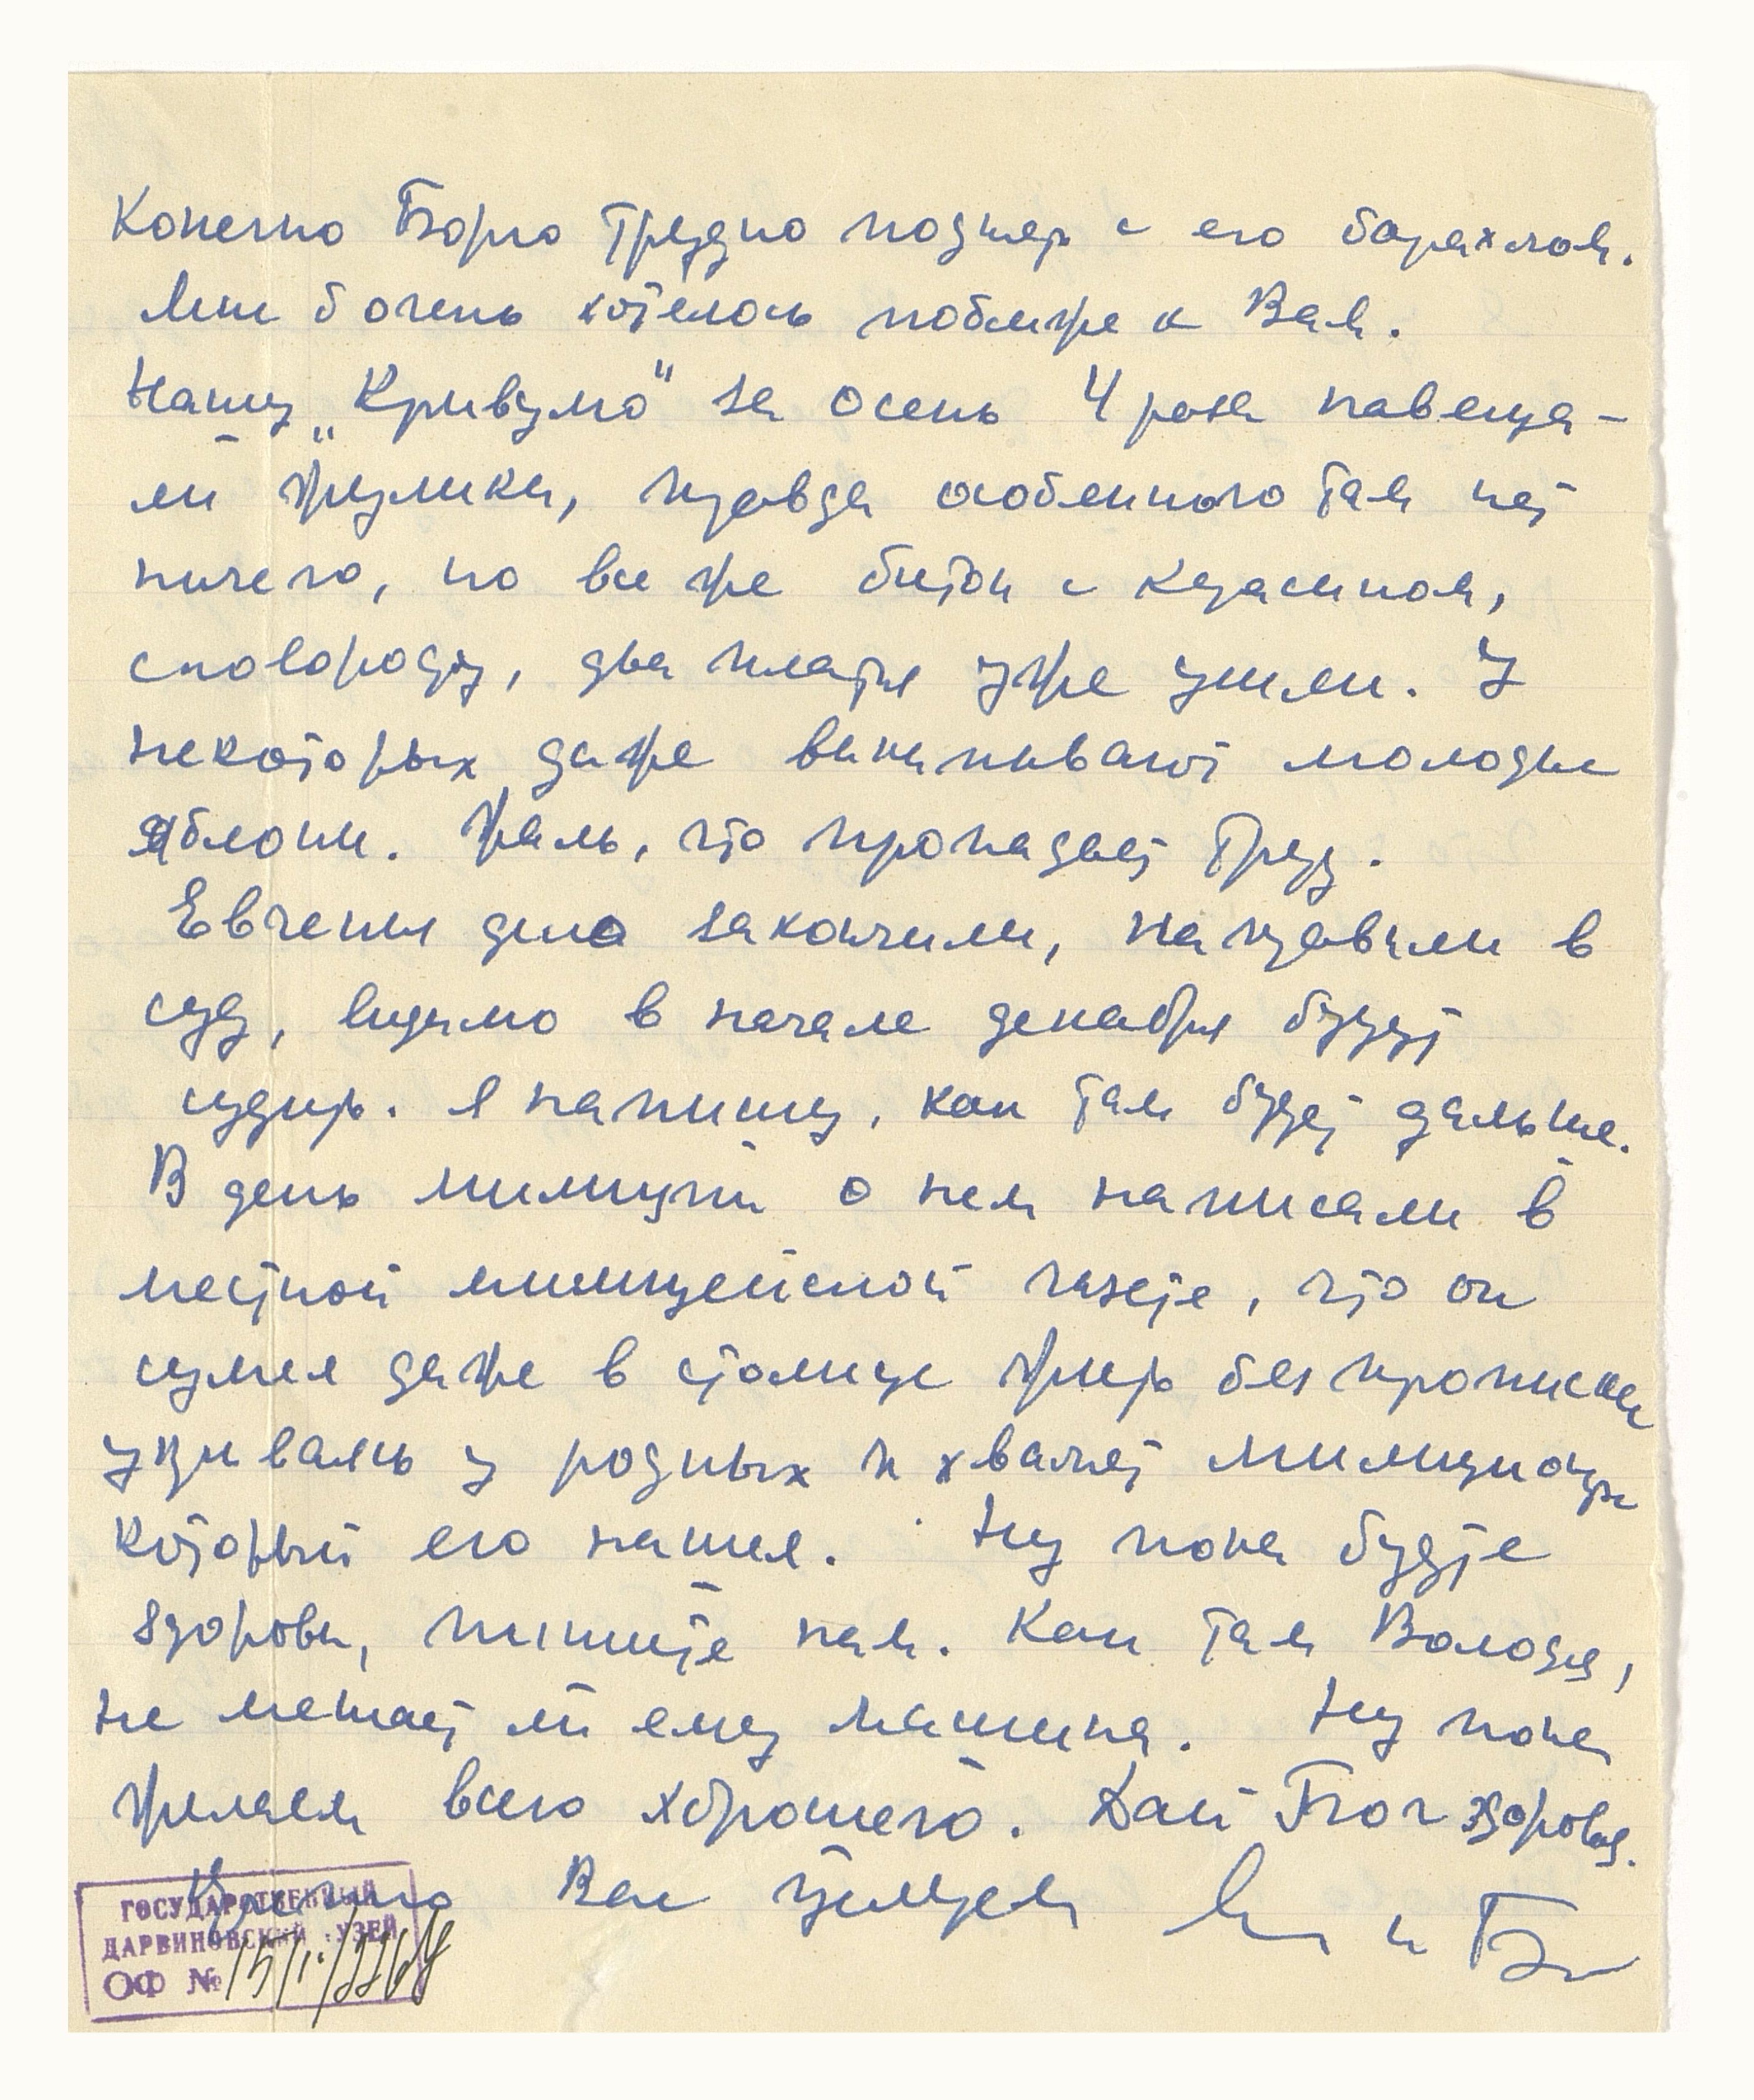 Конечно Борю трудно поднять с его барахлом.
Мне б очень хотелось поближе к Вам.
Нашу „Кривулю" за осень 4 раза навеща-
ли жулики, правда особенного там нет
ничего, но все же бидон с керасином,
сковороду, два платья уже ушли. У
некоторых даже выкапывают молодые
яблони. Жаль, что пропадает труд.
Евгенья дело закончили, направили в
суд, видимо в начале декабря будут
судить. Я напишу, как там будет дальше.
В день милиции о нем написали в
местной милицейской газете, что он
сумел даже в столице жить без прописки
укрываясь у родных и хвалят милиционера
который его нашел. Ну пока будьте
здоровы, пишите нам. Как там Володя,
не мешает ли ему машина. Ну пока
желаем всего хорошего. Дай Бог здоровья.
Крепко Вас целуем
ГОСУДАРСТВЕННЫЙ
ДАРВИНОВСКИЙ МУЗЕЙ
ОФ №